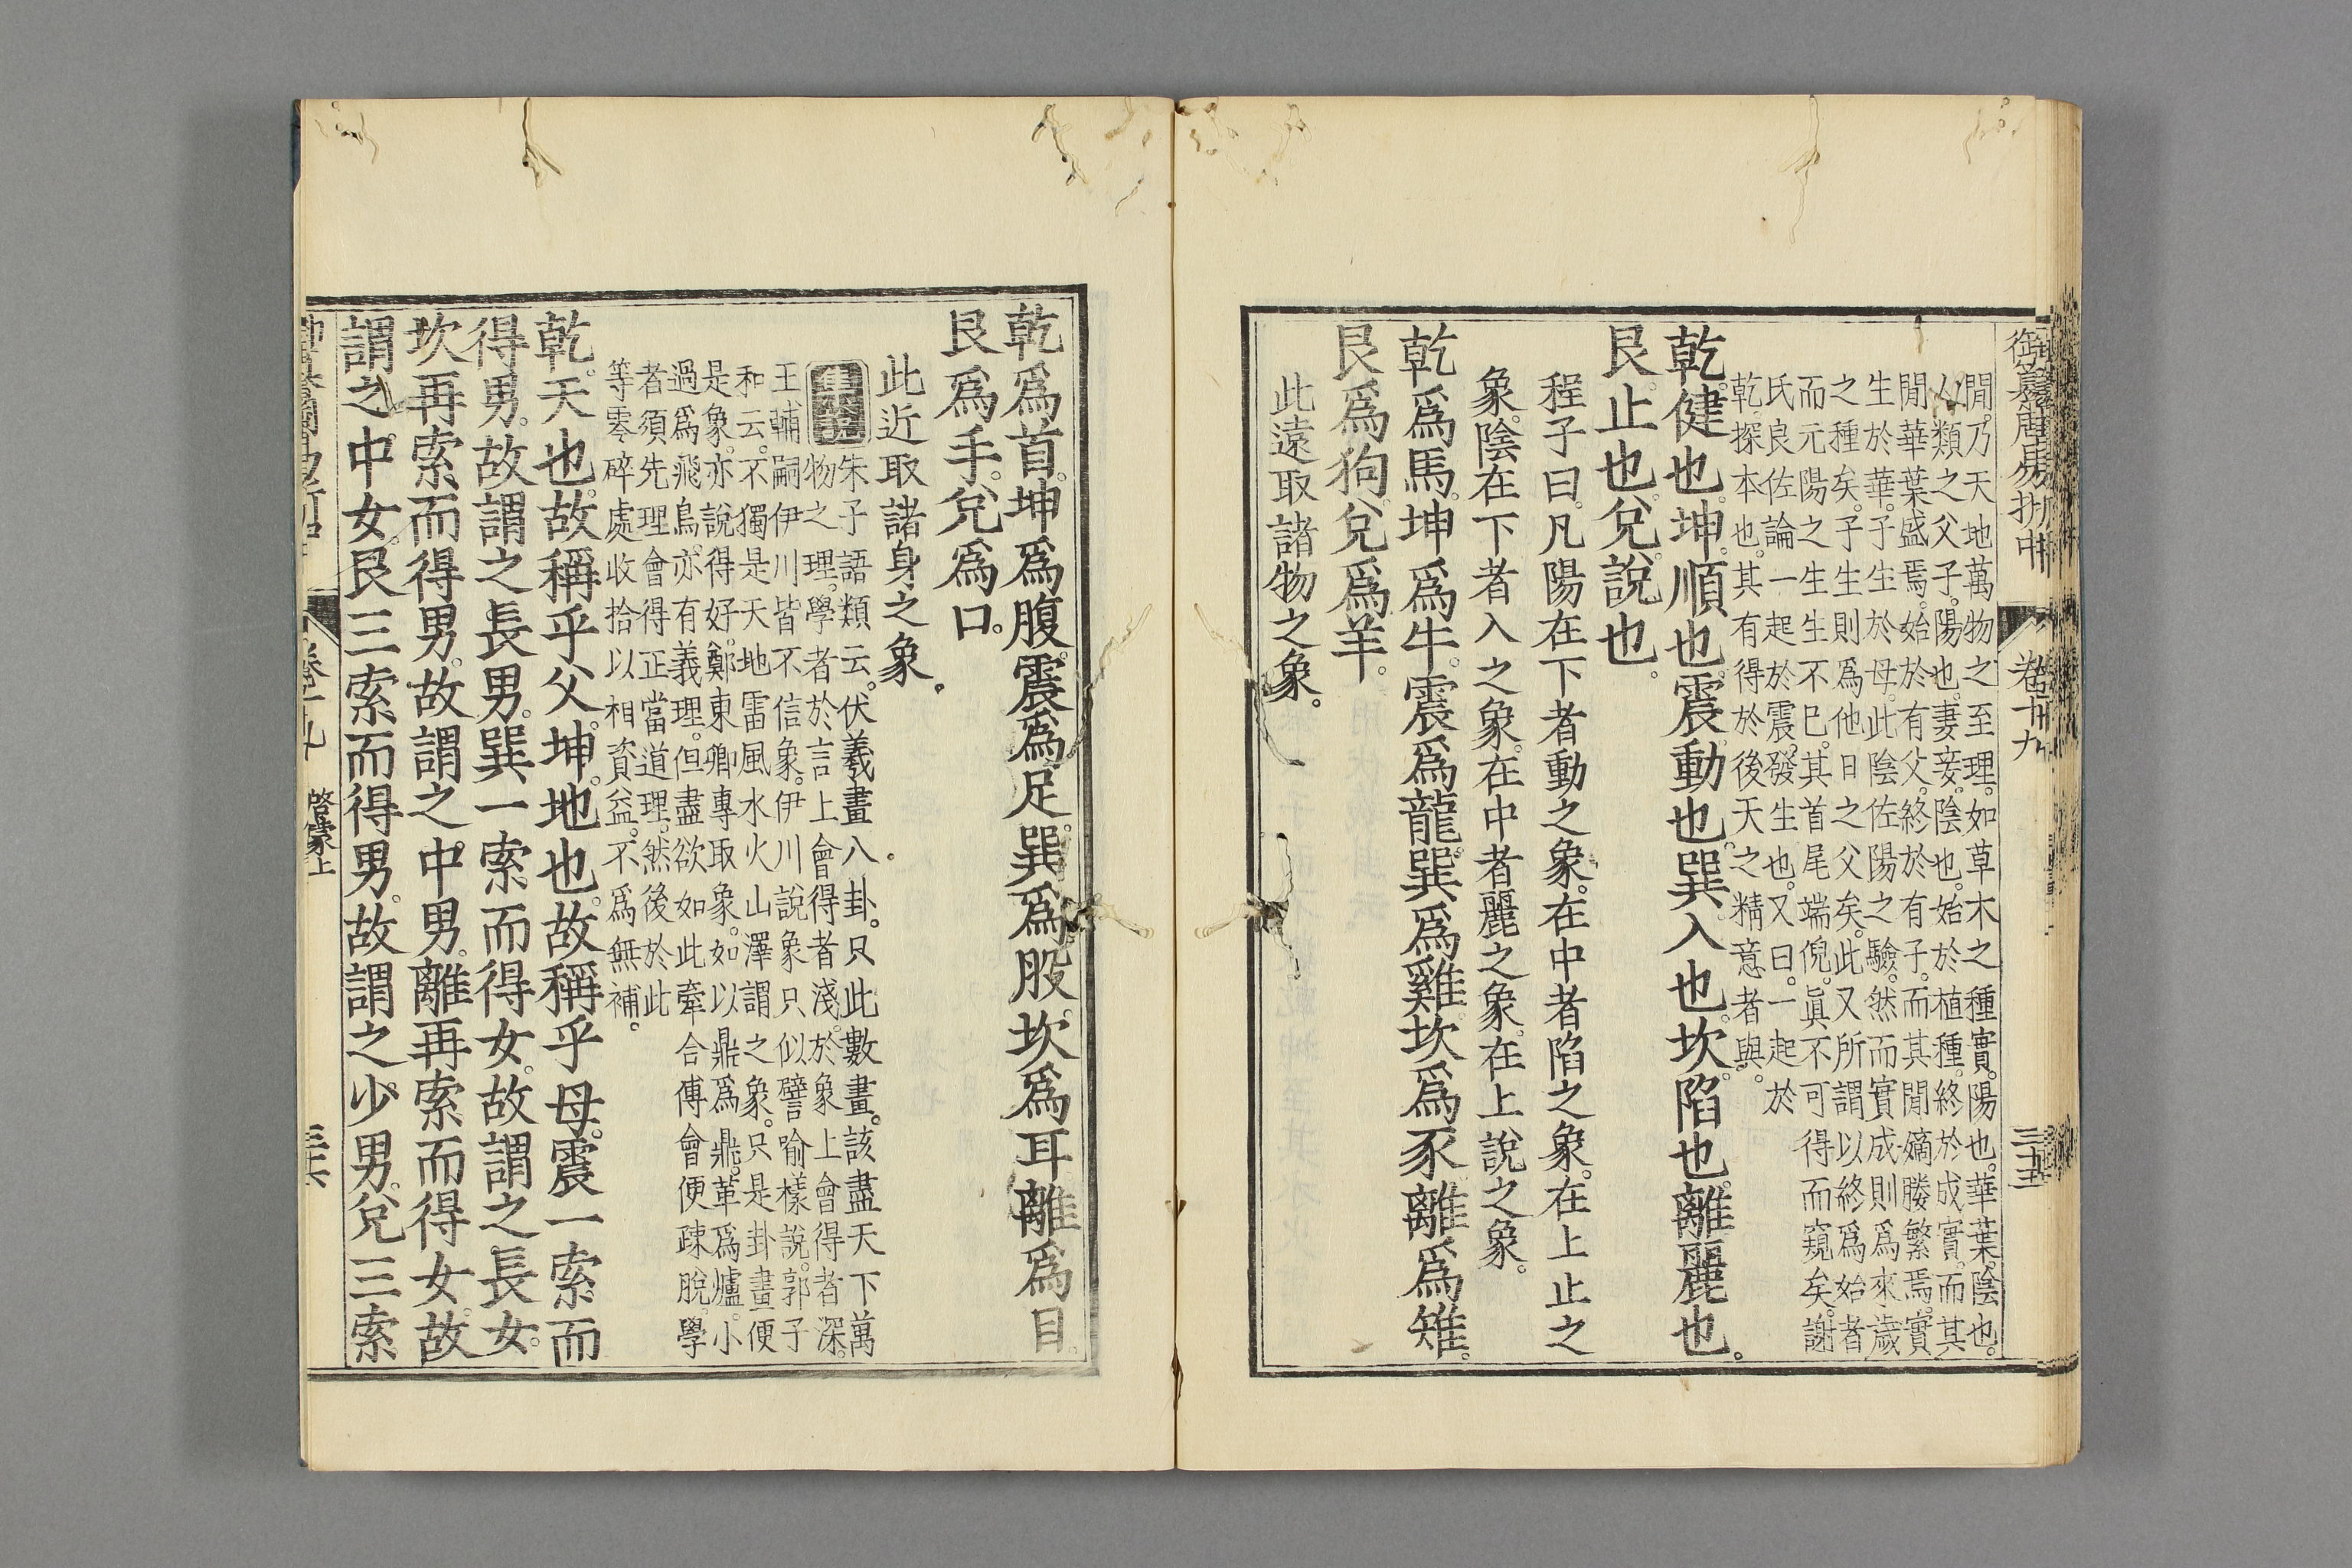 御纂周易折中
卷十九
三十五
閒。乃天地萬物之至理。如草木之種實。陽也。華葉。陰也。
以類之父子。陽也。妻妾。陰也。始於植種。終於成實。而其
閒華葉盛焉。始於有父。終於有子。而其閒嫡媵繁焉。實
生於華。子生於母。此陰佐陽之驗。然而實成則爲來歲
之種矣。子生則爲他日之父矣。此又所謂以終爲始者
而元陽之生生不已。其首尾端倪。眞不可得而窺矣。謝
氏良佐論一起於震。發生也。又曰。一起於
乾。探本也。其有得於後天之精意者與。
乾。健也。坤。順也。震。動也。巽。入也。坎。陷也。離。麗也。
艮。止也。兌。說也。
程子曰。凡陽在下者動之象。在中者陷之象。在上止之
象。陰在下者入之象。在中者麗之象。在上說之象。
乾爲馬。坤爲牛。震爲龍。巽爲雞。坎爲豕。離爲雉。
艮爲狗。兌爲羊。
此遠取諸物之象。
乾爲首。坤爲腹。震爲足。巽爲股。坎爲耳。離爲目。
艮爲手。兌爲口。
此近取諸身之象。
集說
朱子語類云。伏羲畫八卦。只此數畫。該盡天下萬
物之理。學者於言上會得者淺。於象上會得者深。
王輔嗣伊川皆不信象。伊川說象只似譬喻樣說。郭子
和云。不獨是天地雷風水火山澤謂之象。只是卦畫便
是象。亦說得好。鄭東卿專取象。如以鼎爲鼎。革爲爐。小
過爲飛鳥。亦有義理。但盡欲如此牽合傅會便疎脫。學
者須先理會得正當道理。然後於此
等零碎處收拾以相資益。不爲無補。
乾。天也。故稱乎父。坤。地也。故稱乎母。震一索而
得男。故謂之長男。巽一索而得女。故謂之長女。
坎再索而得男。故謂之中男。離再索而得女。故
謂之中女。艮三索而得男。故謂之少男。兌三索
卷十九
啓蒙上
三十六